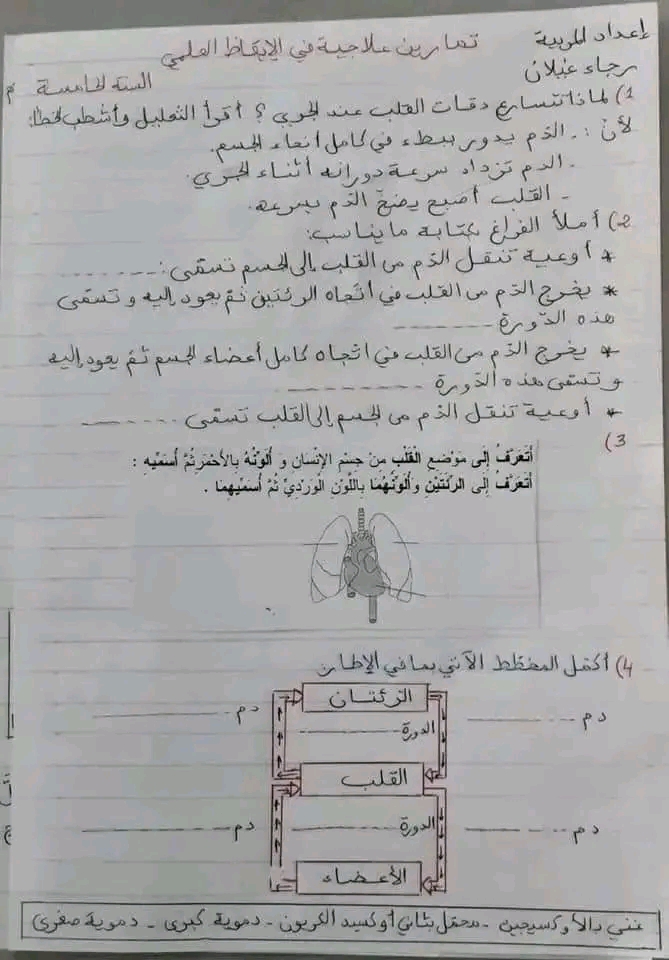 إعداد المربية
رجاء غيلان
تمارين علاجية في الإيقاظ العلمي
السنة الخامسة م
1) لماذا تتسارع دقات القلب عند الجري ؟ أقرأ التعليل وأشطب الخطأ:
لأن : - الدّم يدور ببطء في كامل أنحاء الجسم.
- الدم تزداد سرعة دورانه أثناء الجري.
- القلب أصبح يضخ الدّم بسرعة.
2) أملأ الفراغ بكتابة ما يناسب:
* أوعية تنقل الدّم من القلب إلى الجسم تسمّى: .......
* يخرج الدّم من القلب في اتّجاه الرئتين ثمّ يعود إليه و تسمّى
هذه الدّورة .......
* يخرج الدّم من القلب في اتّجاه كامل أعضاء الجسم ثمّ يعود إليه
و تسمّى هذه الدّورة .......
* أوعية تنقل الدّم من الجسم إلى القلب تسمّى .......
3)
أَتَعَرَّفُ إِلَى مَوْضِعِ القَلْبِ مِنْ جِسْمِ الإِنْسَانِ وَ أُلَوِّنُهُ بِالأَحْمَرِ ثُمَّ أُسَمِّيهِ :
أَتَعَرَّفُ إِلَى الرِّئَتَيْنِ وَأُلَوِّنُهُمَا بِاللَّوْنِ الوَرْدِيِّ ثُمَّ أُسَمِّيهِمَا .
4) أكمل المخطّط الآتي بما في الإطار:
الرئتان
دم ....... الدورة ....... دم .......
القلب
دم ....... الدورة ....... دم .......
الأعضاء
غني بالأوكسيجين - محمّل بثاني أوكسيد الكربون - دموية كبرى - دموية صغرى